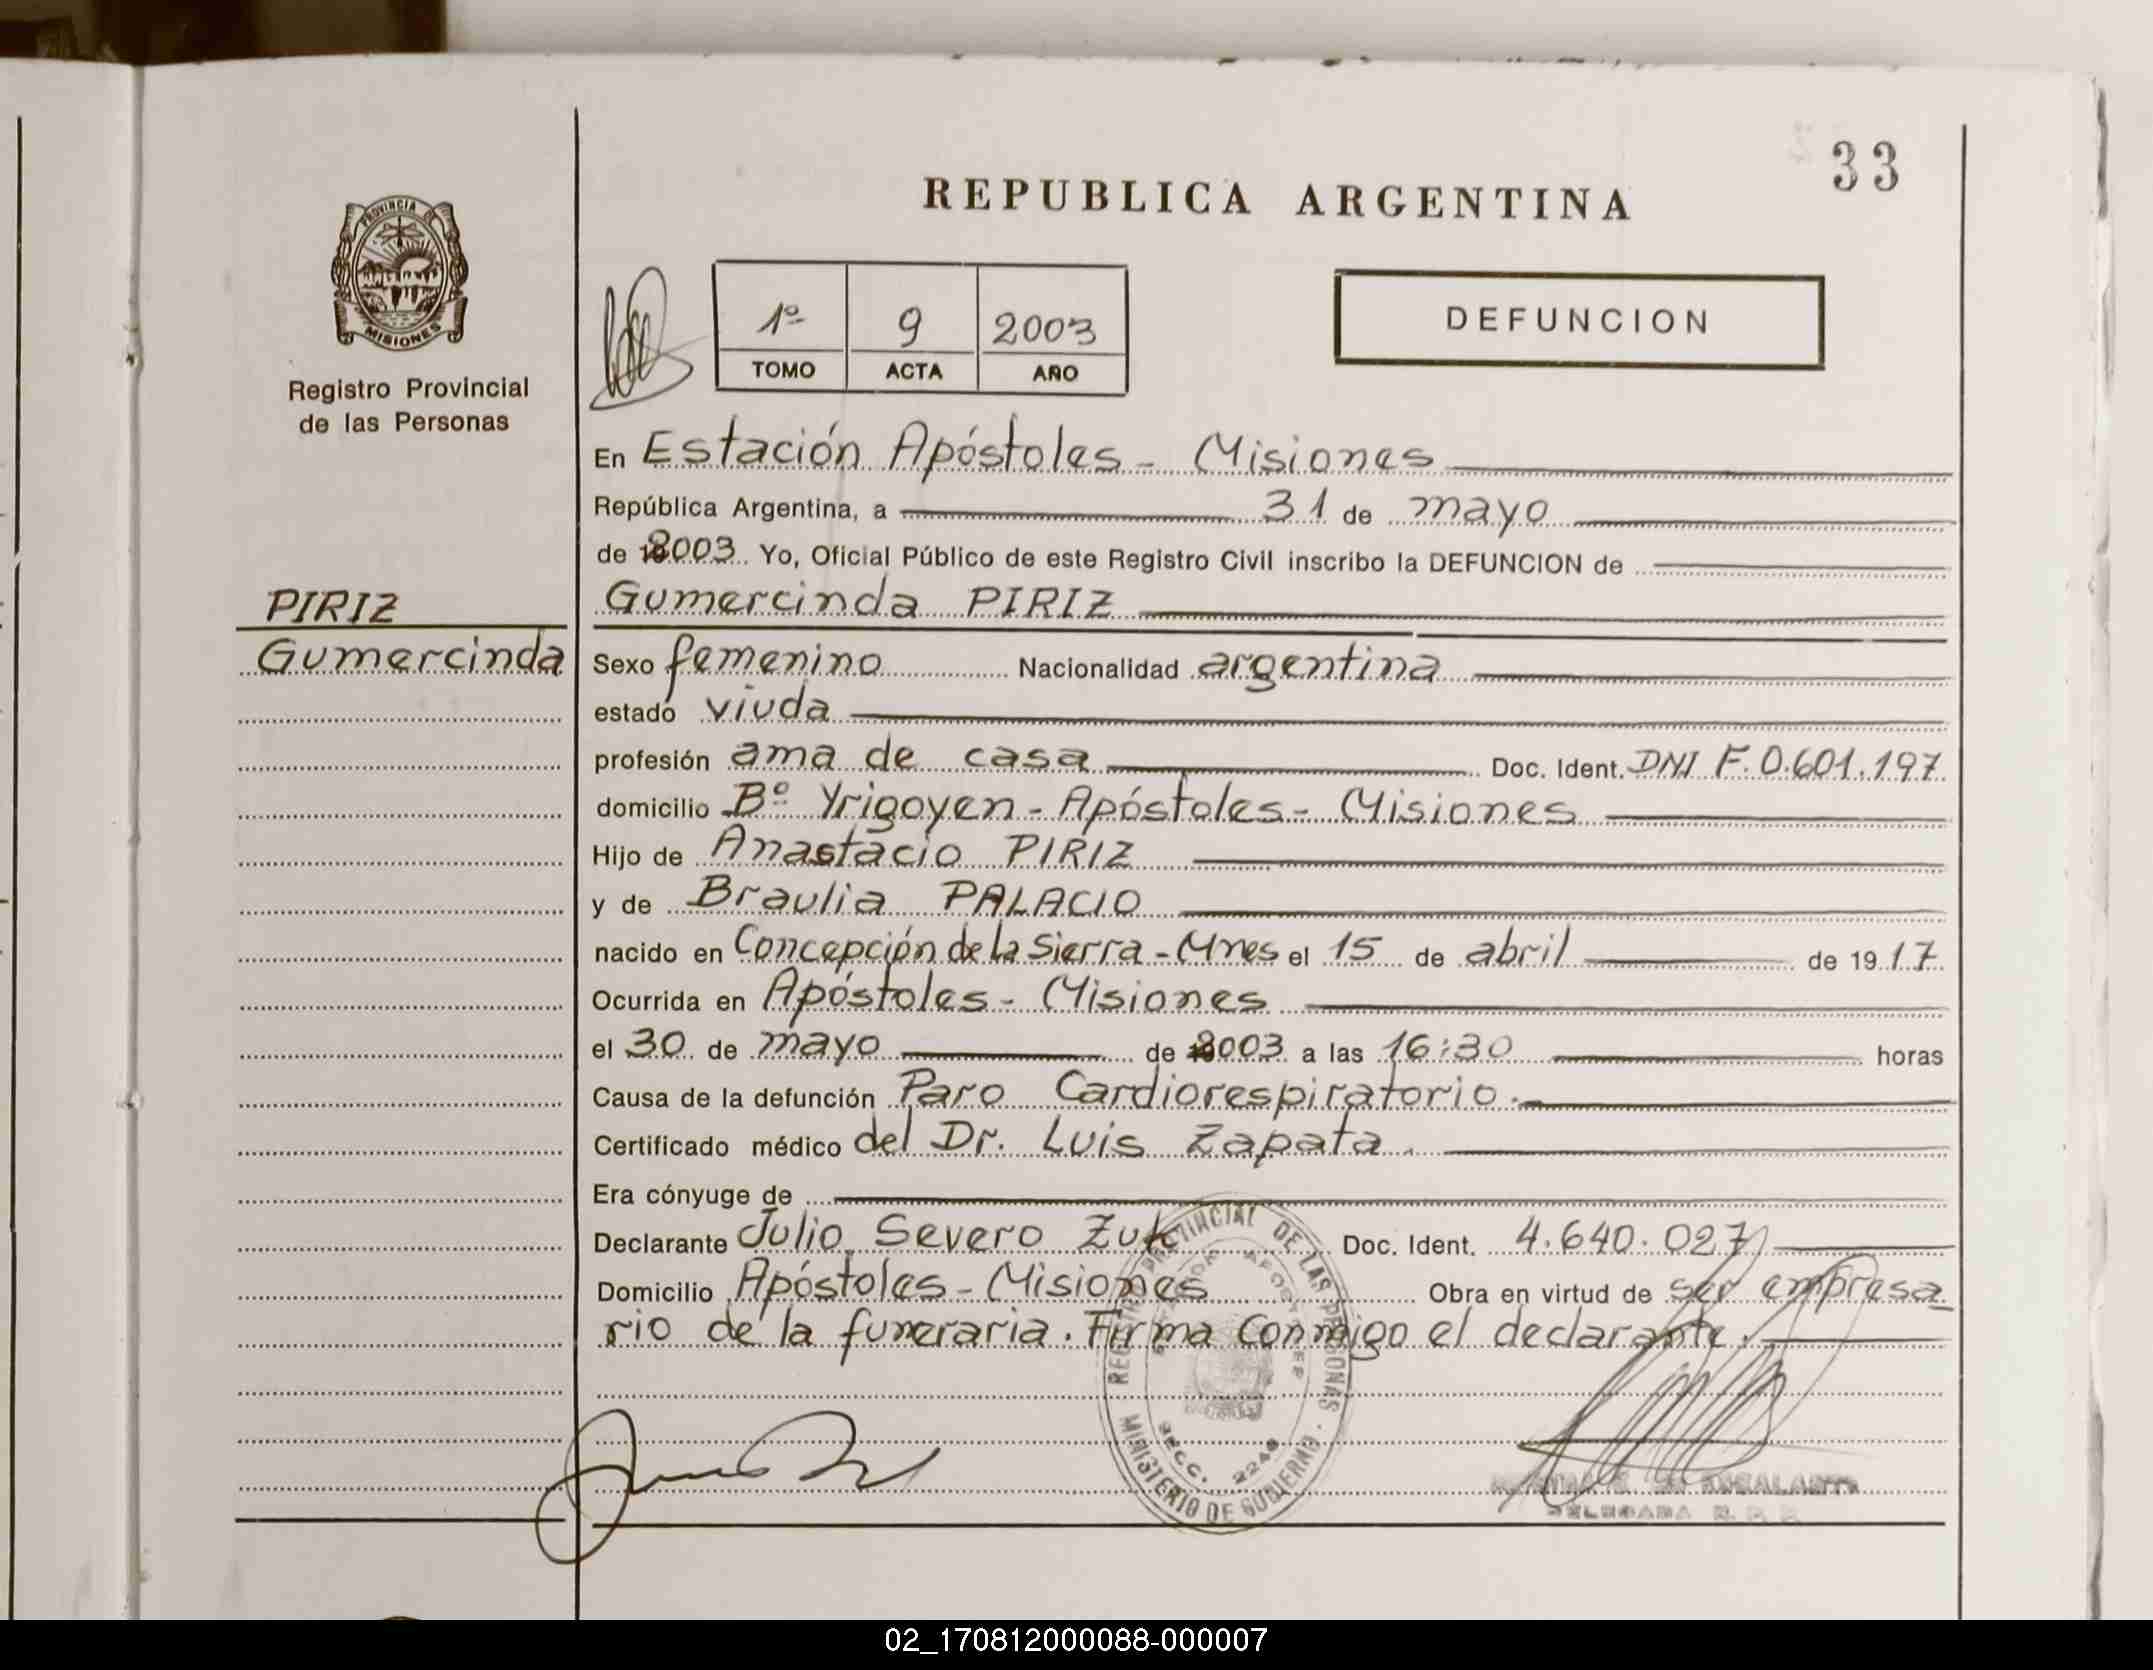 33
REPUBLICA ARGENTINA
PROVINCIA DE
MISIONES
Registro Provincial
de las Personas
1º 9 2003
TOMO ACTA AÑO
DEFUNCION
En Estación Apóstoles - Misiones
República Argentina, a 31 de mayo
de 2003 Yo, Oficial Público de este Registro Civil inscribo la DEFUNCION de
PIRIZ
Gumercinda
Gumercinda PIRIZ
Sexo femenino Nacionalidad argentina
estado viuda
profesión ama de casa Doc. Ident. DNI F. 0.601.197
domicilio Bº Yrigoyen - Apóstoles - Misiones
Hijo de Anastacio PIRIZ
y de Braulia PALACIO
nacido en Concepción de la Sierra - Mnes el 15 de abril de 1917
Ocurrida en Apóstoles - Misiones
el 30 de mayo de 2003 a las 16:30 horas
Causa de la defunción Paro Cardiorespiratorio.
Certificado médico del Dr. Luis Zapata.
Era cónyuge de
Declarante Julio Severo Zuk Doc. Ident. 4.640.027
Domicilio Apóstoles - Misiones Obra en virtud de ser empresa
rio de la funeraria. Firma conmigo el declarante.
REGISTRO PROVINCIAL DE LAS PERSONAS · MINISTERIO DE GOBIERNO
SECC. 2240
DELEGADA R. P. P.
02_170812000088-000007